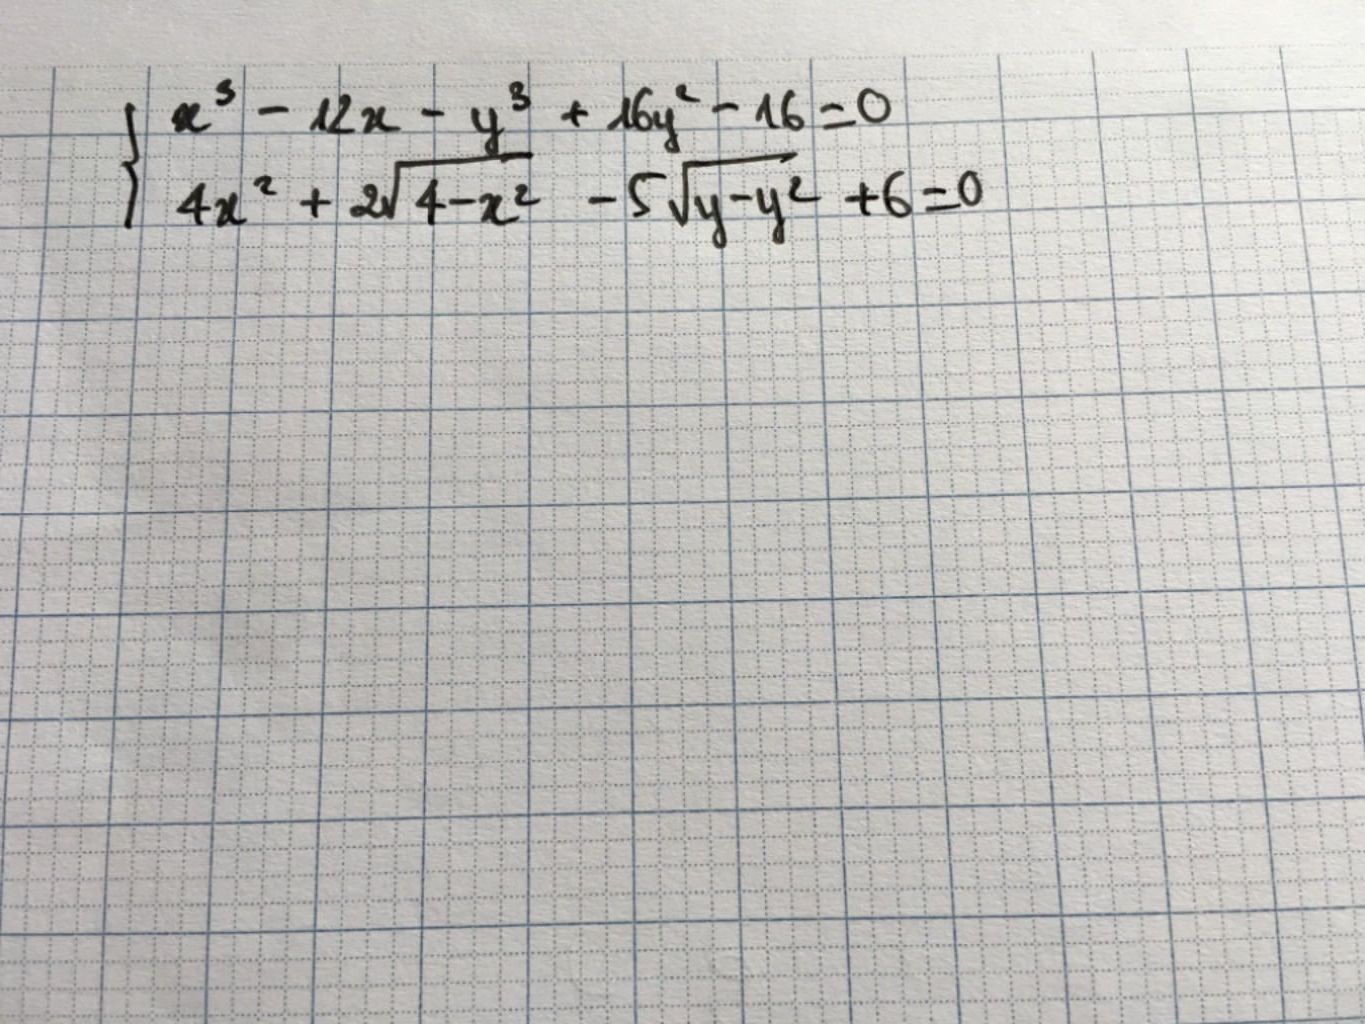 { x³ - 12x - y³ + 16y² - 16 = 0
4x² + 2√(4-x²) - 5√(y-y²) + 6 = 0